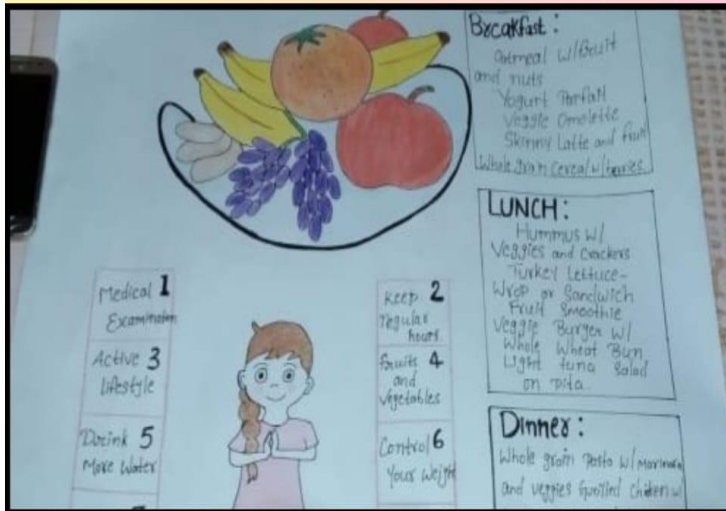 Breakfast:
Oatmeal w/fruit
and nuts
Yogurt Parfait
Veggie Omolette
Skinny Latte and fruit
Whole grain Cereal w/berries
LUNCH:
Hummus w/
Veggies and Crackers
Turkey Lettuce-
Wrop or Sandwich
Fruit Smoothie
Veggie Burger w/
Whole Wheat Bun
Light tuna Salad
on Pita
Dinner:
Whole grain Pasta w/ Marinara
and veggies Grilled Chicken w
Medical 1
Examination
keep 2
regular
hours.
Active 3
lifestyle
fruits 4
and
vegetables
Drink 5
More Water
Control 6
Your Weight